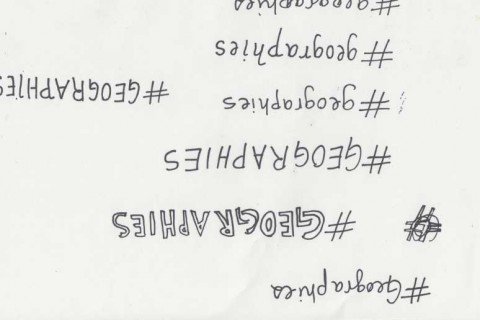 #Geographies
#GEOGRAPHIES
#GEOGRAPHIES
#geographies
#GEOGRAPHIES
#geographies
#geographies